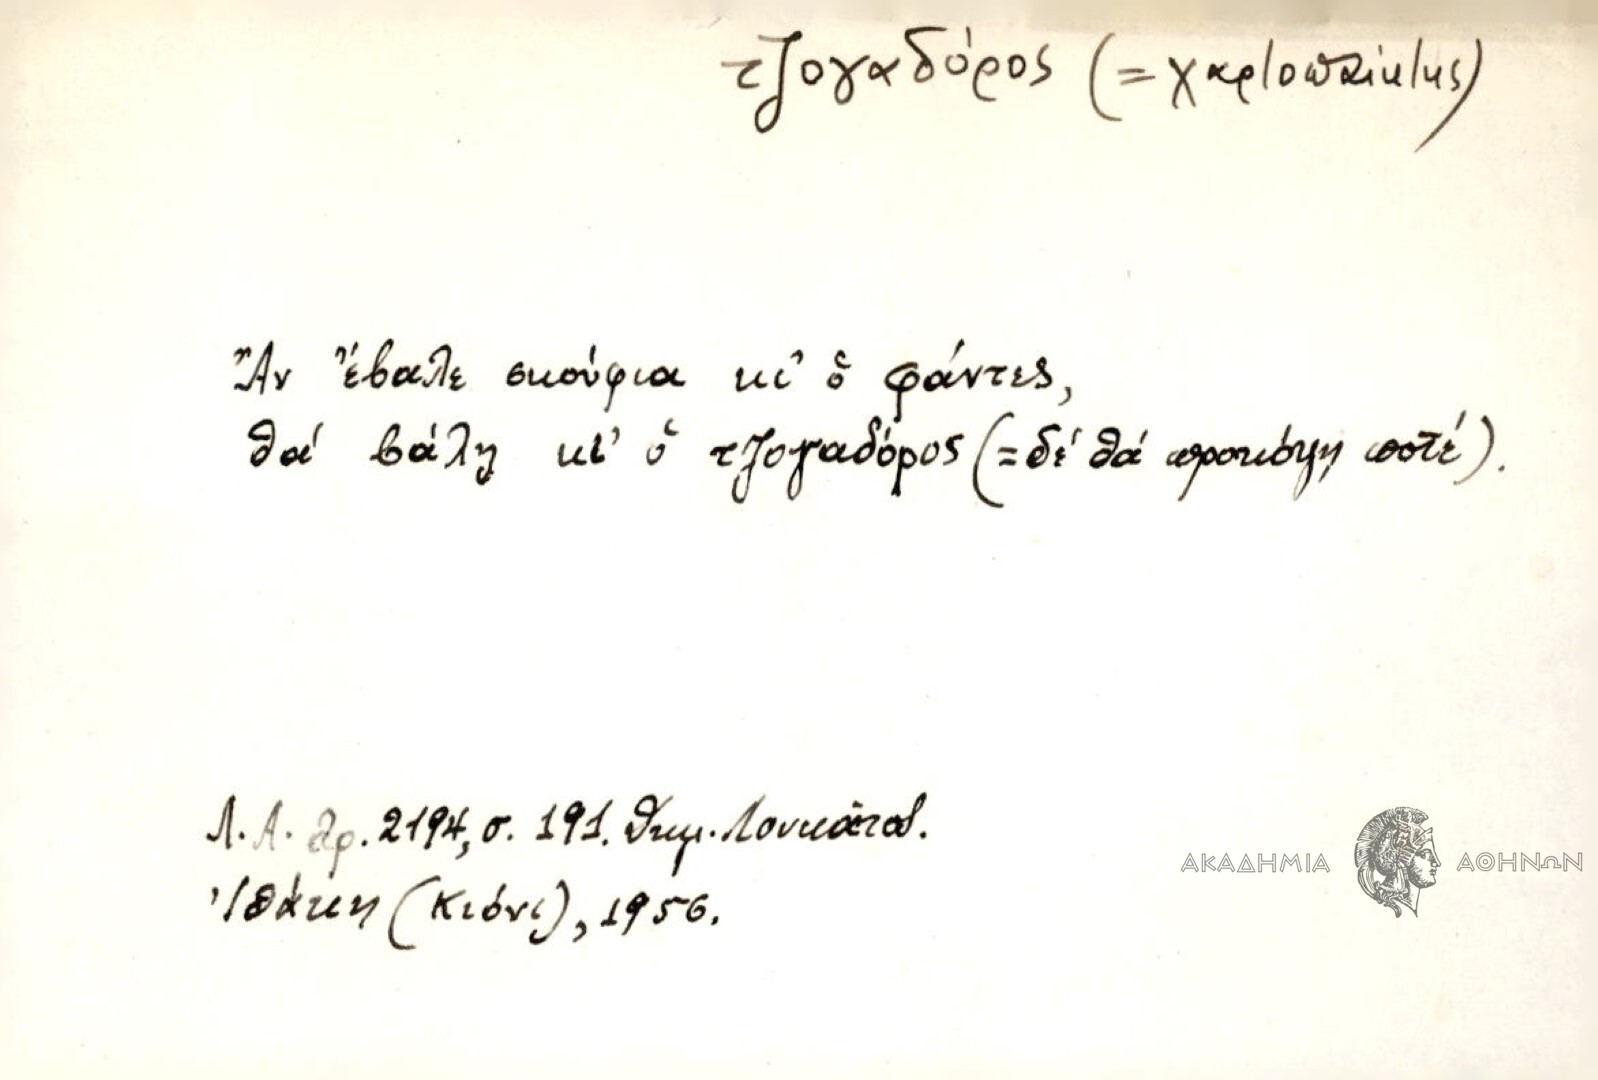 τζογαδόρος (= χαρτοπαίκτης)
Ἂν ἔβαλε σκούφια κι' ὁ φάντες,
θά βάλῃ κι' ὁ τζογαδόρος (= δέ θά προκόψῃ ποτέ).
Λ. Α. ἀρ. 2194, σ. 191. Δημ. Λουκᾶτος.
Ἰθάκη (Κιόνι), 1956.
ΑΚΑΔΗΜΙΑ ΑΘΗΝΩΝ